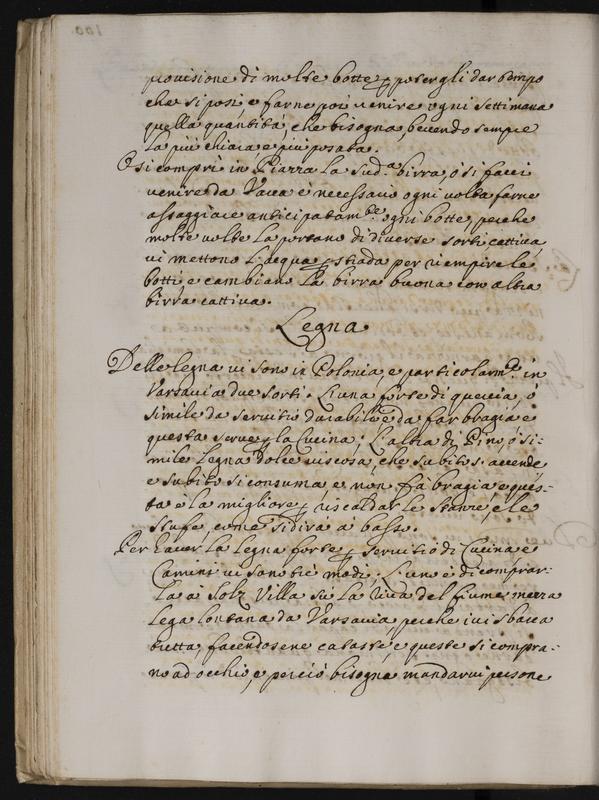 provisione di molte botte p poter gli dar tempo
che si posi e farne poi venire ogni settimana
quella quantità, che bisogna, bevendo sempre
la più chiara e più posata.
O si compri in Piazza la sud.ª birra, ò si facci
venire da Varca è necessario ogni volta farne
assaggiare anticipatam.te ogni botte, perche
molte volte la portano di diverse sorti cattiva,
vi mettono l'acqua p strada per riempire le
botti e cambiano la birra buona con altra
birra cattiva.
Legna
Delle legna vi sono in Polonia, e particolarm.e in
Varsavia due sorti. L'una forte di quercia, ò
simile da servitio durabile e da far bragia e
questa serve p la Cucina; L'altra di Pino, ò si:
mile legna dolce viscosa, che subito s'accende
e subito si consuma e non fà bragia e ques:
ta è la migliore p riscaldar le stanze, e le
stufe, come si dirà à basso.
Per haver la legna forte p servitio di Cucina e
Camini vi sono trè modi. L'uno è di comprar:
la a Solz Villa sù la riva del fiume mezza
lega lontana da Varsavia, perche ivi sbarca
tutta facendosene cataste e queste si compra:
no ad occhio, e perciò bisogna mandarvi persone